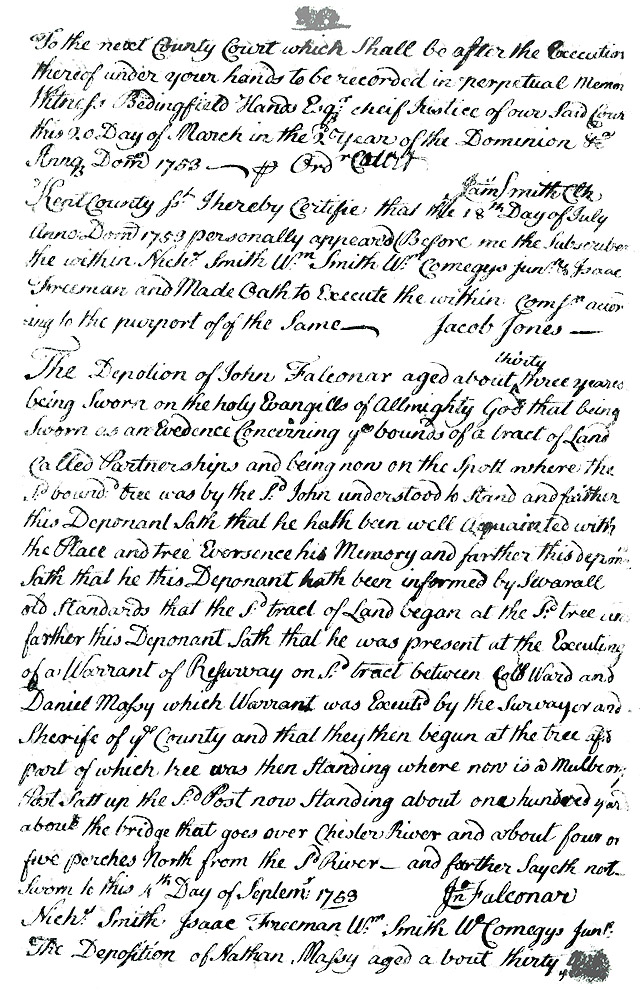 To the next County Court which Shall be after the Execution
thereof under your hands to be recorded in perpetual Memo
Witness Bedingfield Hands Esqr. cheif Justice of our Said Cour
this 20 Day of March in the 2d Year of the Dominion &c
Annoq Domi 1753 — Ord
Smith Clk
Kent County Sct. I hereby Certifie that the 18th Day of July
Anno Domi 1753 personally appeared Before me the Subscriber
the within Nichs. Smith Wm Smith Wm Comegys Junr. & Isaac
Freeman and Made Oath to Execute the within Comsn accor
ing to the purport of of the Same — Jacob Jones —
thirty
The Depotion of John Falconar aged about three years
being Sworn on the holy Evangills of Allmighty God that being
Sworn as an Evedence Concirning ye bounds of a tract of Land
Called Partnerships and being now on the Spott where the
Sd bound tree was by the Sd John understood to Stand and farther
this Deponant Sath that he hath been well Aquainted with
the Place and tree Eversence his Memory and farther this depon
Sath that he this Deponant hath been informed by Swarall
old Standards that the Sd tract of Land began at the Sd tree an
farther this Deponant Sath that he was present at the Executing
of a Warrant of Resurway on Sd tract between Colo Ward and
Daniel Massy which Warrant was Executd by the Surwayor and
Sherife of ye County and that they then begun at the tree afsd
part of which tree was then Standing where now is a Mulberry
Post Satt up the Sd Post now Standing about one hundred yar
about the bridge that goes over Chester River and about four or
five perches North from the Sd River — and farther Sayeth not
Sworn to this 4th Day of Septemr 1753 Jno Falconar
Nichs. Smith Isaac Freeman Wm Smith Wm Comegys Junr.
The Deposition of Nathan Massy aged a bout thirty